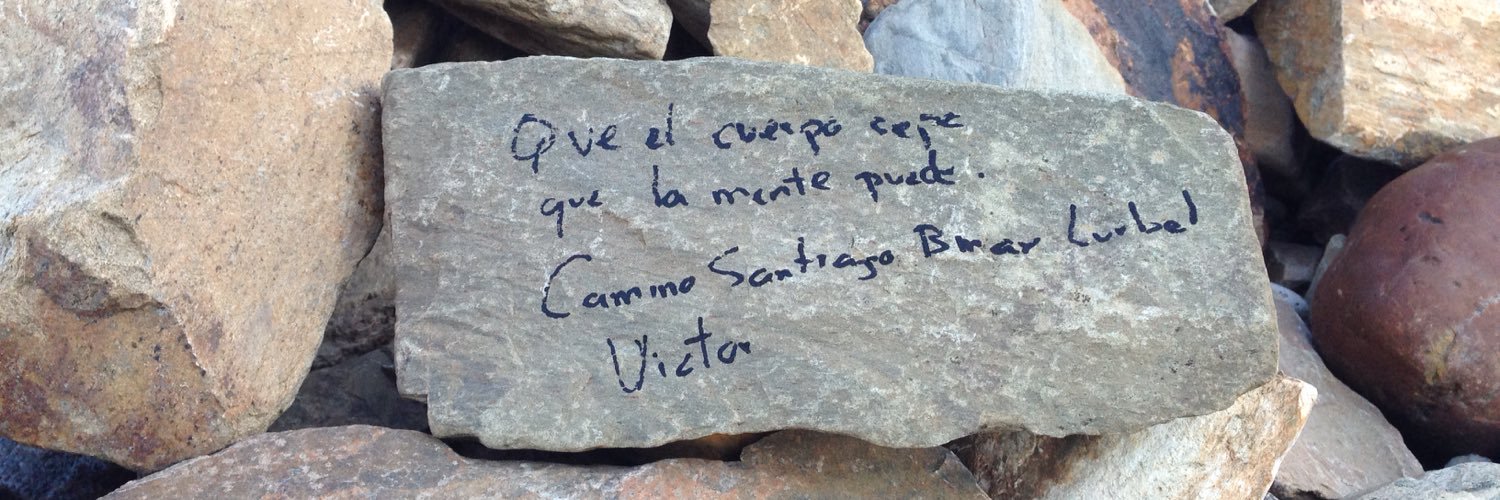 Que el cuerpo sepa
que la mente puede.
Camino Santiago Bmar Lurbel
Victor